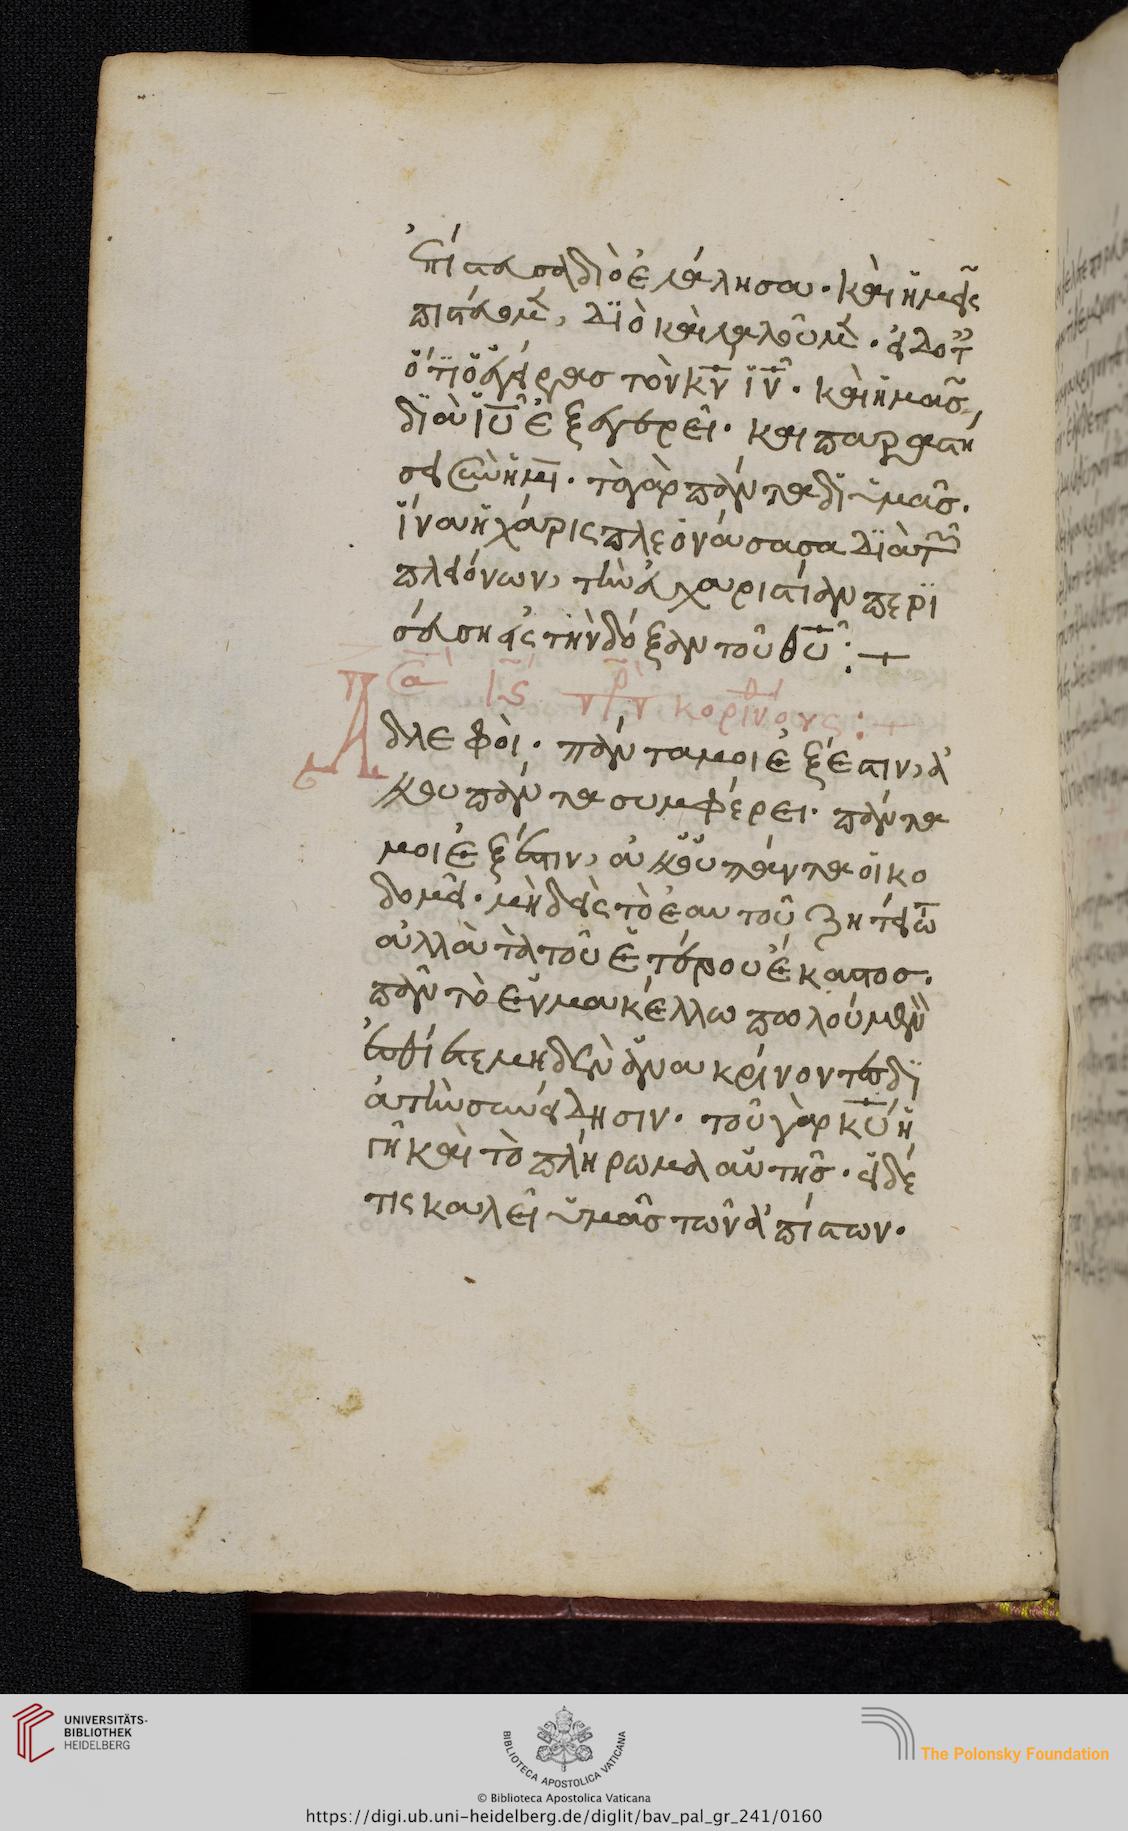 ἐπίστευσα διὸ ἐλάλησα· καὶ ἡμεῖς
πιστεύομεν, διὸ καὶ λαλοῦμεν· εἰδότες
ὅτι ὁ ἐγείρας τὸν κν ιν· καὶ ἡμᾶς
διὰ ιυ ἐξεγερεῖ· καὶ παραστή
σει σὺν ἡμῖν· τὸ γὰρ πάντα δι ὑμᾶς·
ἵνα ἡ χάρις πλεονάσασα διὰ τῶν
πλειόνων, τὴν εὐχαριστίαν περι
σεύση εἰς τὴν δόξαν τοῦ θυ :+
κορινθίους :+
Ἀδελφοὶ· πάντα μοι ἔξεστιν, ἀλλ
οὐ πάντα συμφέρει· πάντα
μοι ἔξεστιν, ἀλλ οὐ πάντα οἰκο
δομεῖ· μηδεὶς τὸ ἑαυτοῦ ζητείτω
ἀλλὰ τὰ τοῦ ἑτέρου ἕκαστος·
πᾶν τὸ ἐν μακέλλω πωλούμενον
ἐσθίετε μηδὲν ἀνακρίνοντες δι
ὰ τὴν συνείδησιν· τοῦ γὰρ κυ ἡ
γῆ καὶ τὸ πλήρωμα αὐτῆς· εἰ δέ
τις καλεῖ ὑμᾶς τῶν ἀπίστων·
UNIVERSITÄTS-
BIBLIOTHEK
HEIDELBERG
BIBLIOTECA APOSTOLICA VATICANA
The Polonsky Foundation
© Biblioteca Apostolica Vaticana
https://digi.ub.uni-heidelberg.de/diglit/bav_pal_gr_241/0160